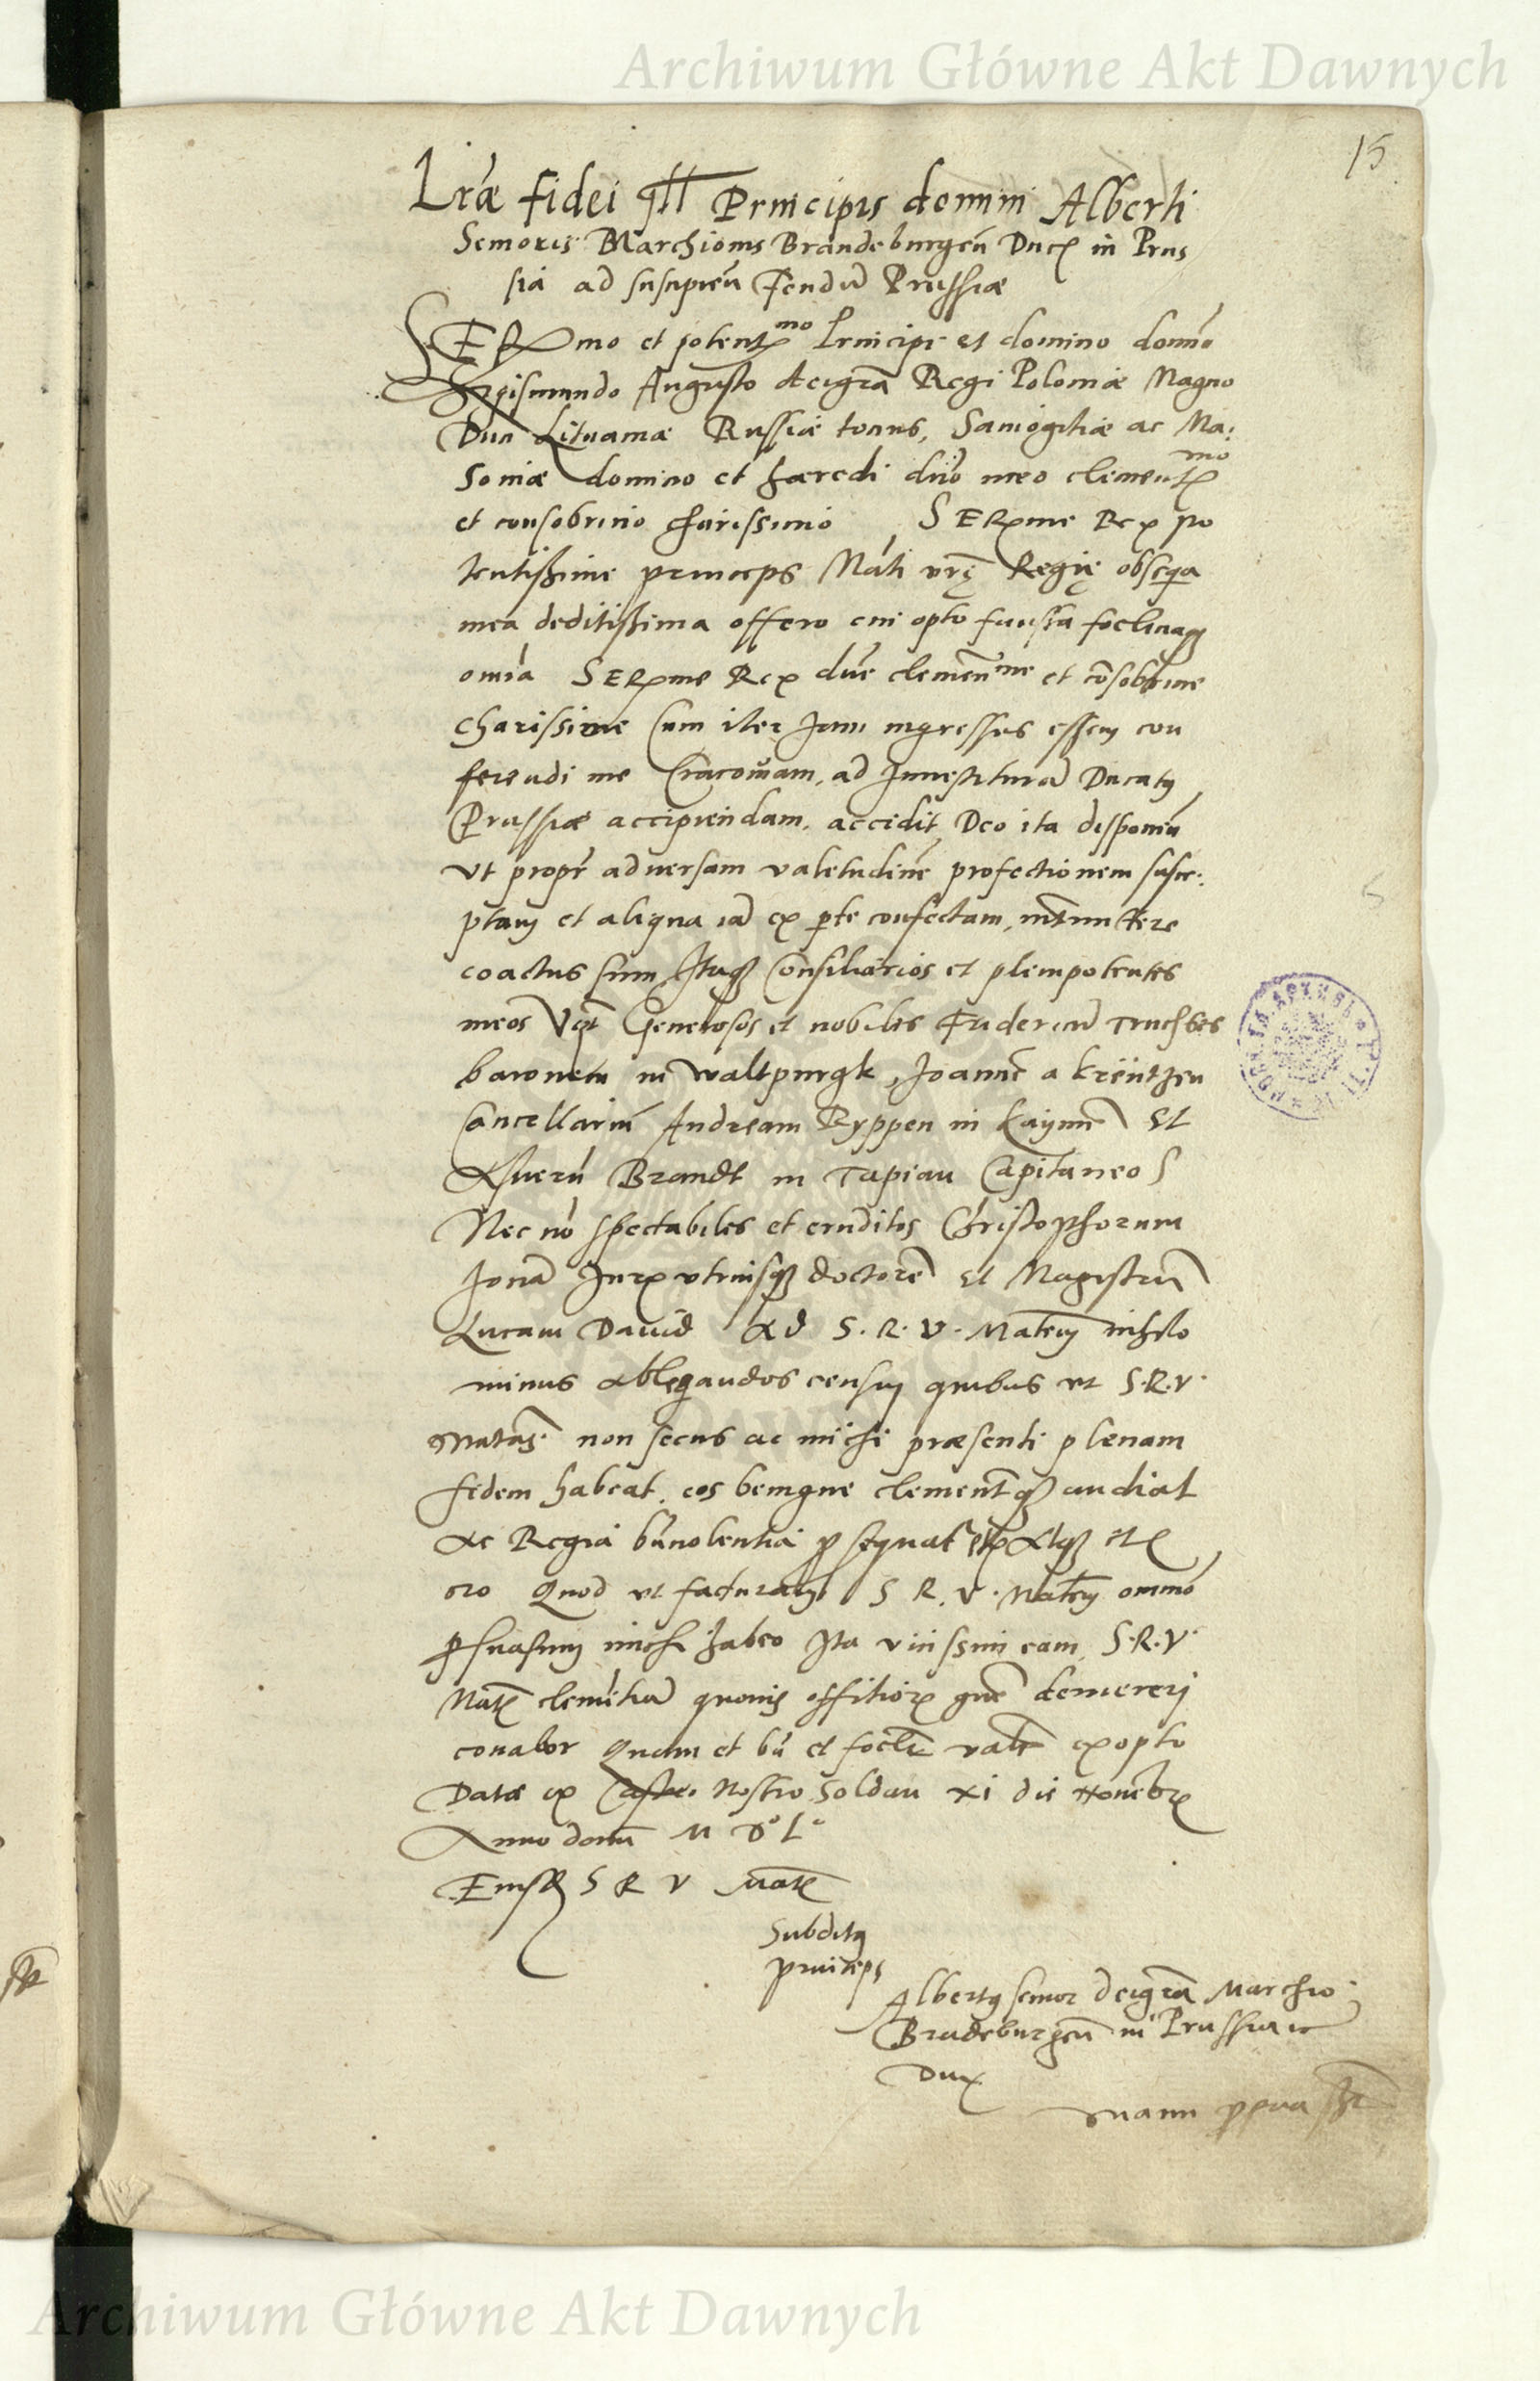 Archiwum Główne Akt Dawnych
15
Lrãe fidei Principis domini Alberti
Senioris Marchionis Brandeburgeñ Duc in Prus
siã ad suscipieñ Feudũ Prussiæ
SERmo et potentmo Principi et domino domño
Sigismundo Augusto deigrã Regi Poloniæ Magno
Duci Lituaniæ Russiæ totius, Samogitiæ ac Ma:
soniæ domino et hæredi dño meo clementmo
et consobrino charissimo SERme Rex po
tentißime princeps Mãti vrę Regię obseqia
mea deditißima offero cui opto fausta foeliciaq
omĩa SERme Rex dñe clemeñme et cõsobrine
charissime Cum iter Jam ingressus essem con
ferendi me Cracouiam, ad Jnuestiturã Ducatus
Prussiæ accipiendam, accidit, Deo ita disponeñ
vt propr̃ aduersam valetudinẽ profectionem susce:
ptam et aliqua iã ex pte confectam, intermittere
coactus sum Itaq Consiliarios et plenipotentes
meos Vqt Generosos et nobiles Fridericũ Truchses
baronem in waltpurgk, Joannẽ a Kreüntzen
Cancellariũ Andream Ryppen in Kaymẽ Et
Asuerũ Brandt in Tapiau Capitaneos
Nec nõ spectabiles et eruditos Christophorum
Jonã Jur vtriusq doctorẽ et Magistrũ
Lucam Dauid Ad S. R. V. Matem nihilo
minus ablegandos censui quibus vt S.R.V.
Matas. non secus ac michi præsenti plenam
fidem habeat. eos benigne clementq audiat
Ac Regia bñuolentia psequat etiam Atq etia
oro Quod vt facturam S R. V. Matem omnino
psuasum michi habeo Ita vicissim eam, S.R.V.
Matis clemẽtiã quouis offitior gñe demererj
conabor Quam et bñ et foelr̃ valẽ exopto
Datæ ex Castro Nostro Soldau xi die Nouẽbr
Anno domi M Do Lo
Eiusd S R V Matis
Subditus
princeps
Albertus senior deigrã Marchio
Brãdeburgeñ in Prussia ic
Dux
manu ppria sst
Archiwum Główne Akt Dawnych